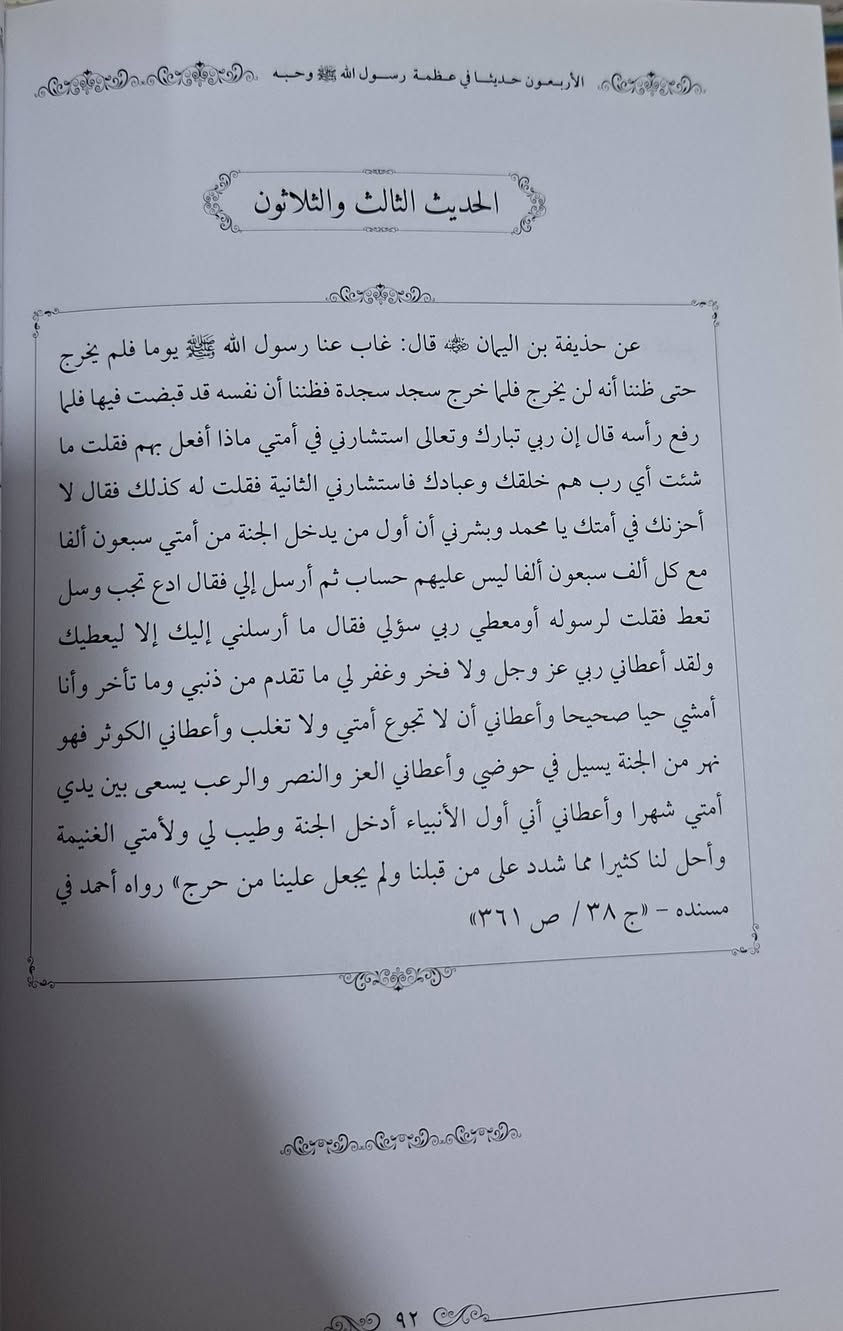 الأربعون حديثا في عظمة رسول الله ﷺ وحبه
الحديث الثالث والثلاثون
عن حذيفة بن اليمان رضي الله عنه قال: غاب عنا رسول الله ﷺ يوما فلم يخرج
حتى ظننا أنه لن يخرج فلما خرج سجد سجدة فظننا أن نفسه قد قبضت فيها فلما
رفع رأسه قال إن ربي تبارك وتعالى استشارني في أمتي ماذا أفعل بهم فقلت ما
شئت أي رب هم خلقك وعبادك فاستشارني الثانية فقلت له كذلك فقال لا
أحزنك في أمتك يا محمد وبشرني أن أول من يدخل الجنة من أمتي سبعون ألفا
مع كل ألف سبعون ألفا ليس عليهم حساب ثم أرسل إلي فقال ادع تجب وسل
تعط فقلت لرسوله أومعطي ربي سؤلي فقال ما أرسلني إليك إلا ليعطيك
ولقد أعطاني ربي عز وجل ولا فخر وغفر لي ما تقدم من ذنبي وما تأخر وأنا
أمشي حيا صحيحا وأعطاني أن لا تجوع أمتي ولا تغلب وأعطاني الكوثر فهو
نهر من الجنة يسيل في حوضي وأعطاني العز والنصر والرعب يسعى بين يدي
أمتي شهرا وأعطاني أني أول الأنبياء أدخل الجنة وطيب لي ولأمتي الغنيمة
وأحل لنا كثيرا مما شدد على من قبلنا ولم يجعل علينا من حرج» رواه أحمد في
مسنده - «ج ٣٨ / ص ٣٦١»
٩٢